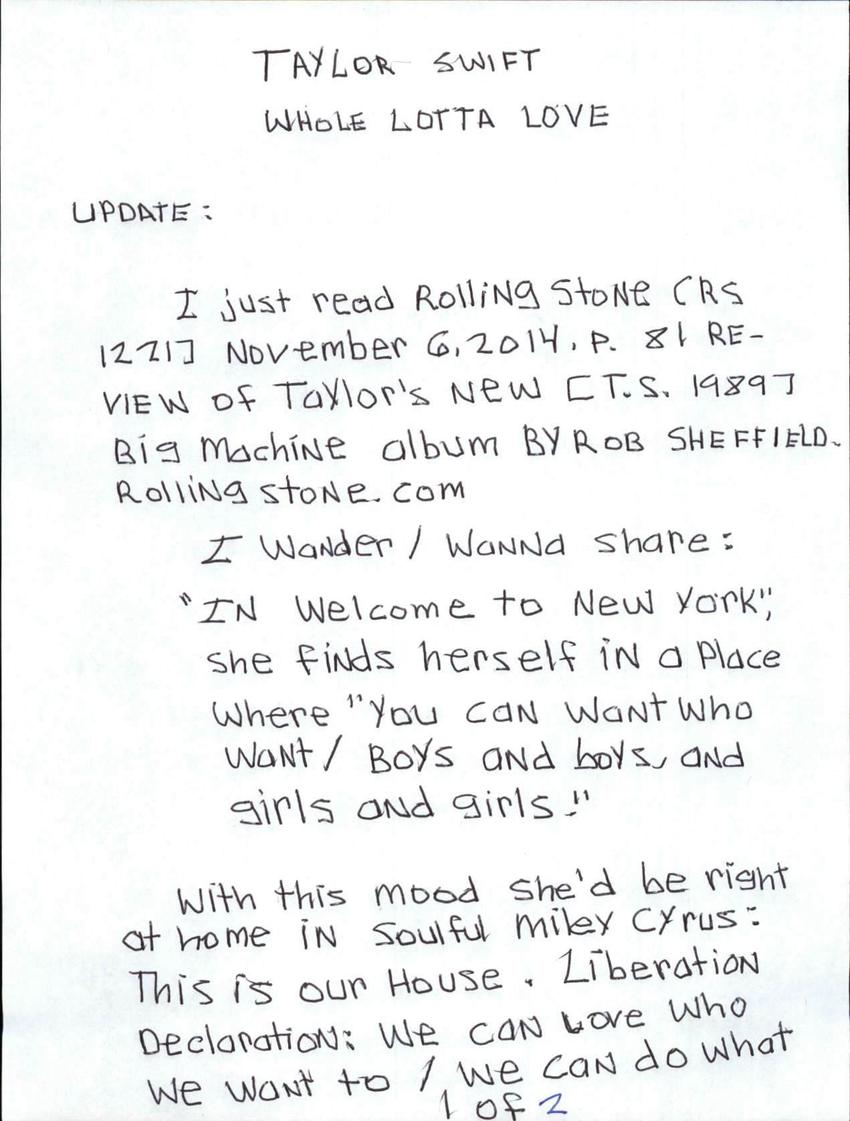 TAYLOR SWIFT
WHOLE LOTTA LOVE
UPDATE:
I just read Rolling Stone CRS
1221] November 6, 2014. P. 81 RE-
VIEW of Taylor's New [T.S. 1989]
Big Machine album BY ROB SHEFFIELD.
Rolling stone.com
I Wander / Wanna share:
"IN Welcome to New York",
she finds herself in a Place
Where "You can want who
want / Boys and boys, and
girls and girls."
With this mood she'd be right
at home in soulful miley Cyrus:
This is our House. Liberation
Declaration: We can Love who
we want to / We can do what
1 of 2